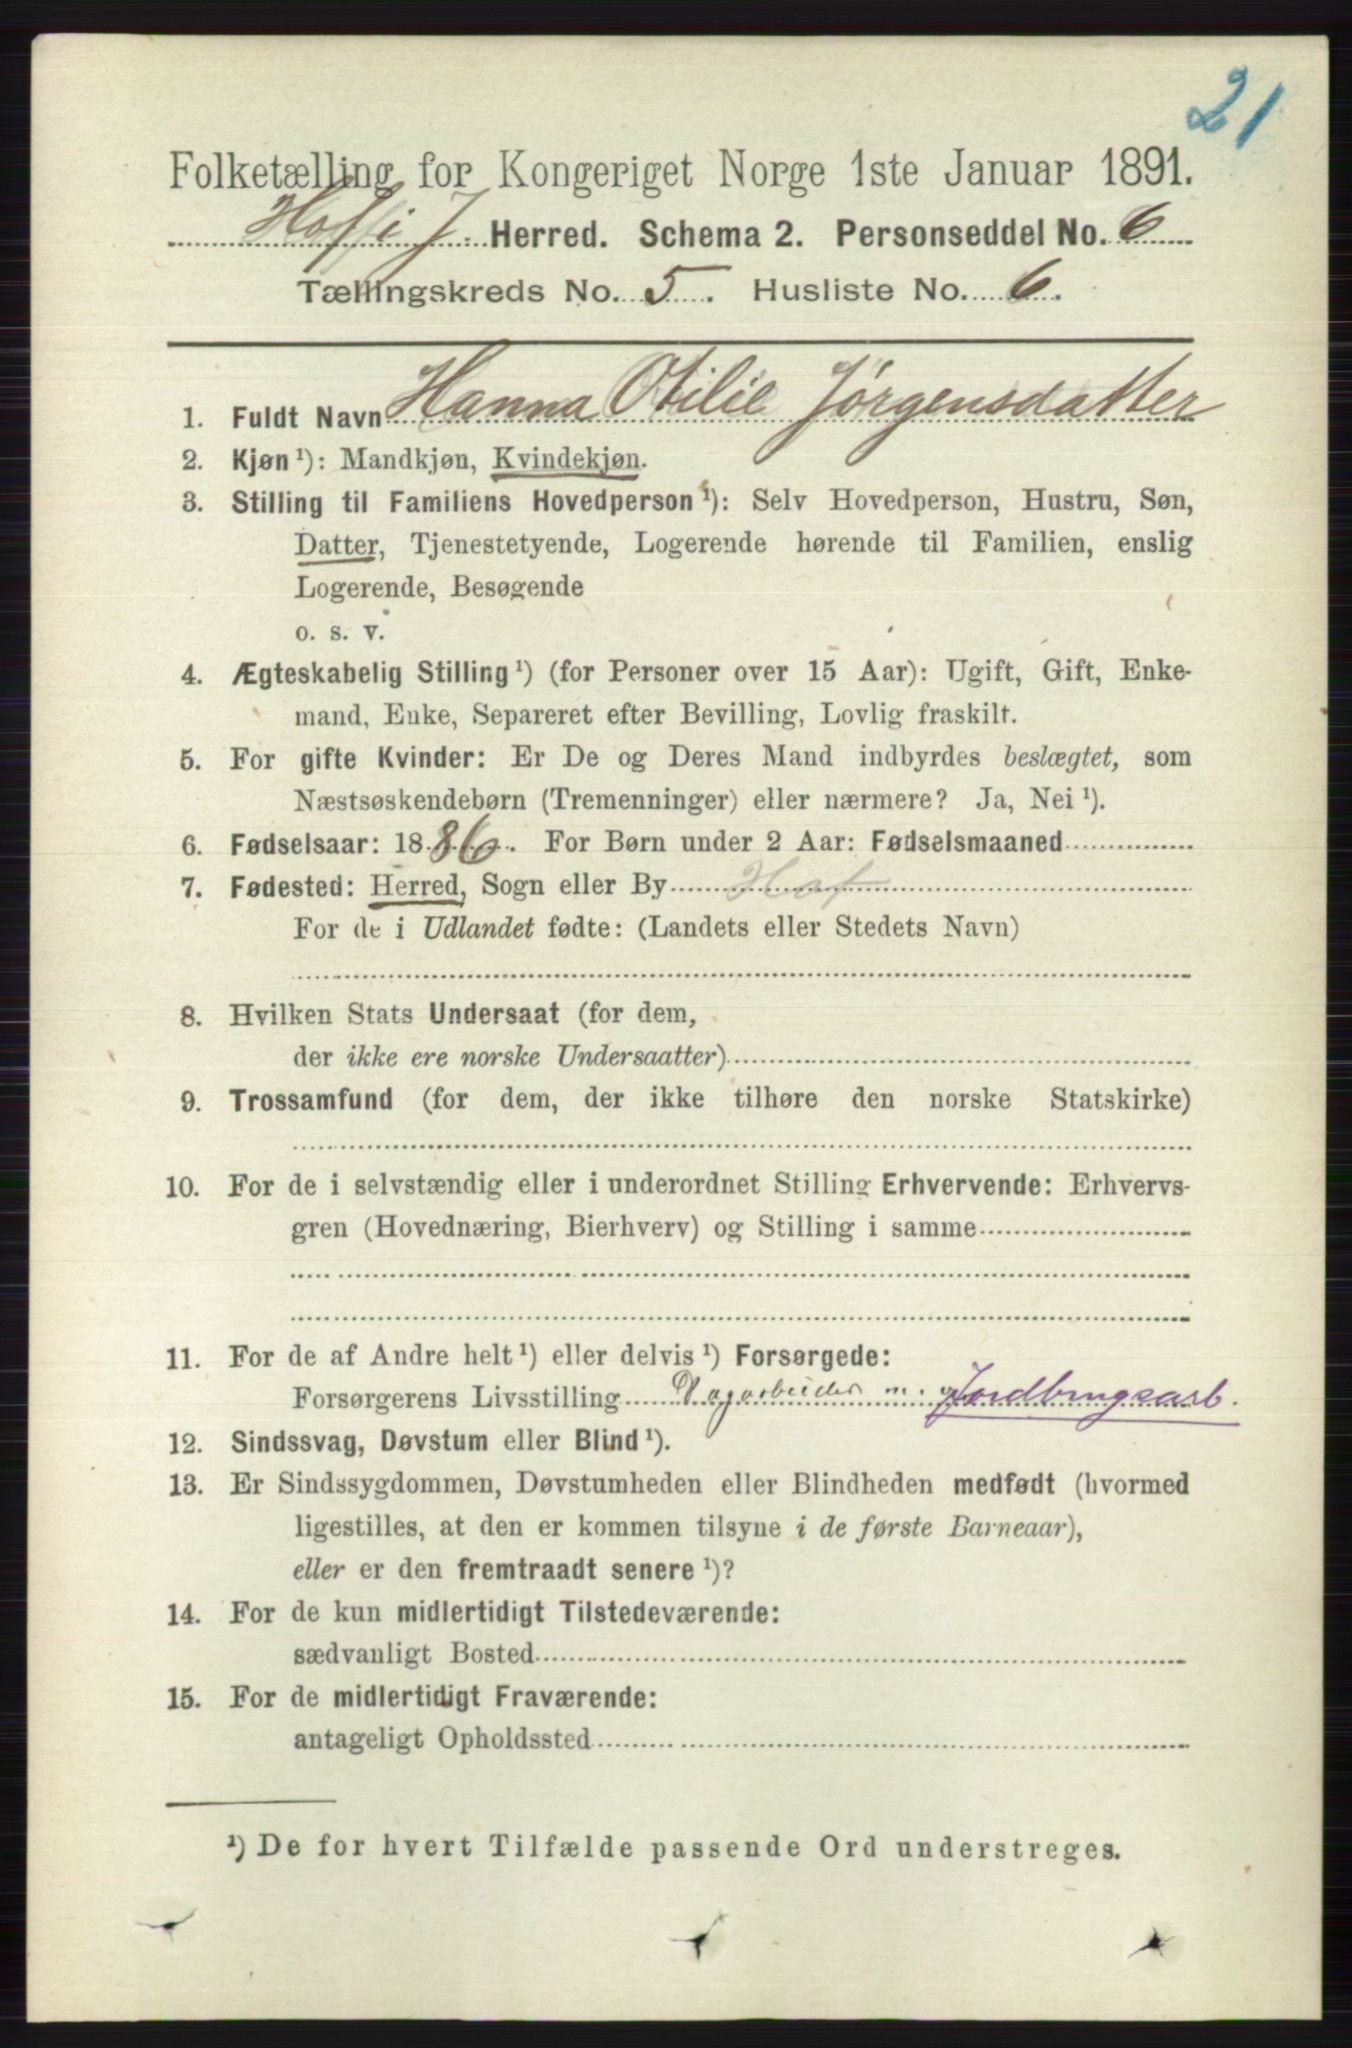 21
Folketælling for Kongeriget Norge 1ste Januar 1891.
Hof i J. Herred. Schema 2. Personseddel No. 6
Tællingskreds No. 5. Husliste No. 6.
1. Fuldt Navn Hanna Otilie Jørgensdatter
2. Kjøn¹): Mandkjøn, Kvindekjøn.
3. Stilling til Familiens Hovedperson¹): Selv Hovedperson, Hustru, Søn,
Datter, Tjenestetyende, Logerende hørende til Familien, enslig
Logerende, Besøgende
o. s. v.
4. Ægteskabelig Stilling¹) (for Personer over 15 Aar): Ugift, Gift, Enke-
mand, Enke, Separeret efter Bevilling, Lovlig fraskilt.
5. For gifte Kvinder: Er De og Deres Mand indbyrdes beslægtet, som
Næstsøskendebørn (Tremenninger) eller nærmere? Ja, Nei¹).
6. Fødselsaar: 1886. For Børn under 2 Aar: Fødselsmaaned
7. Fødested: Herred, Sogn eller By Hof
For de i Udlandet fødte: (Landets eller Stedets Navn)
8. Hvilken Stats Undersaat (for dem,
der ikke ere norske Undersaatter)
9. Trossamfund (for dem, der ikke tilhøre den norske Statskirke)
10. For de i selvstændig eller i underordnet Stilling Erhvervende: Erhvervs-
gren (Hovednæring, Bierhverv) og Stilling i samme
11. For de af Andre helt¹) eller delvis¹) Forsørgede:
Forsørgerens Livsstilling Dagarbeider m. Jordbrugsarb.
12. Sindssvag, Døvstum eller Blind¹).
13. Er Sindssygdommen, Døvstumheden eller Blindheden medfødt (hvormed
ligestilles, at den er kommen tilsyne i de første Barneaar),
eller er den fremtraadt senere¹)?
14. For de kun midlertidigt Tilstedeværende:
sædvanligt Bosted
15. For de midlertidigt Fraværende:
antageligt Opholdssted
¹) De for hvert Tilfælde passende Ord understreges.